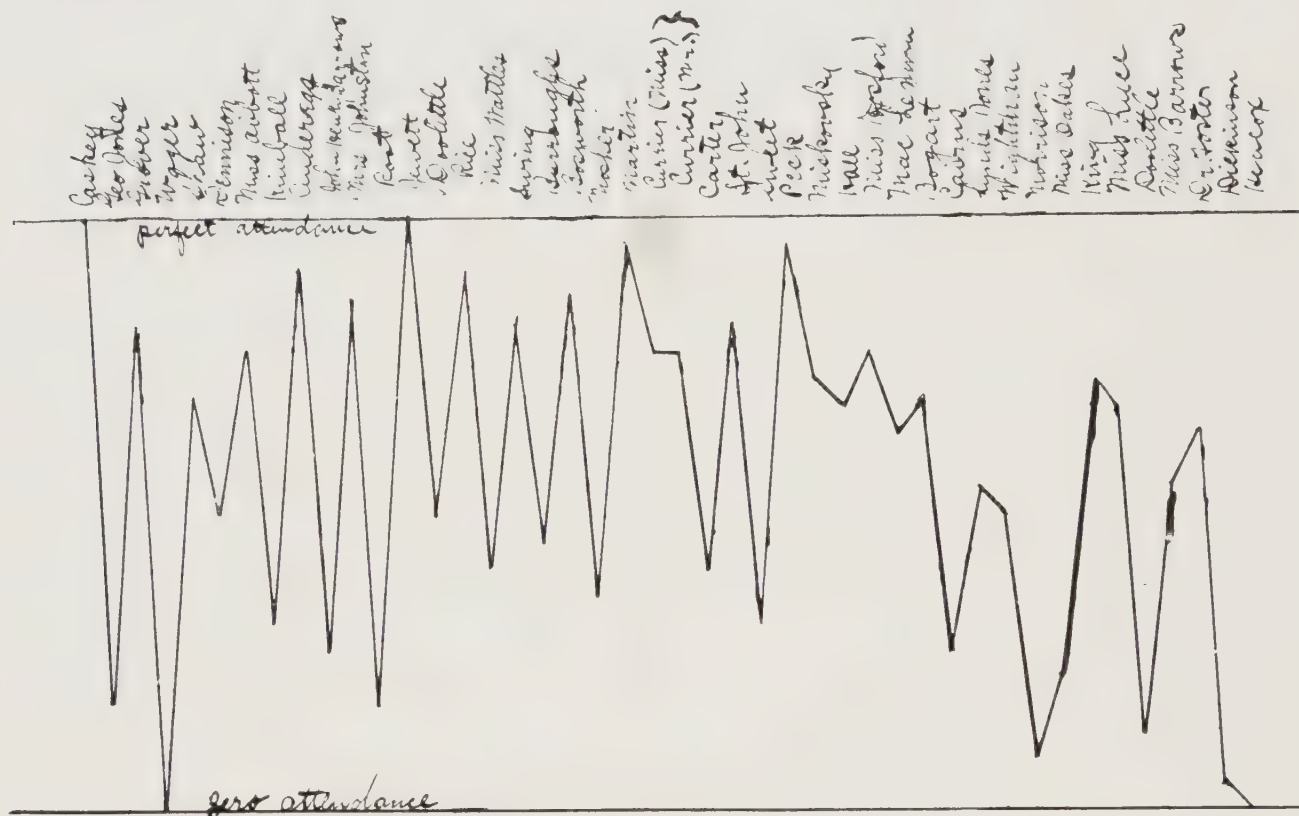 Caskey
Geo Jones
Grover
Kroger
Shaw
Tennison
Miss Abbott
Kimball
John Henry Barrows
Mrs Johnston
Root
Doolittle
Rice
Miss Wattles
Ewing
Burroughs
Bosworth
Mosher
Martin
Currier (Miss) }
Currier (Mr.)
Carter
St. John
Sweet
Peck
Miskovsky
Hall
Miss Hosford
MacLennan
Bogart
Cairns
Lynds Jones
Wightman
Morrison
Miss Oakes
King
Miss Luce
Doolittle
Miss Barrows
Dr. Foster
Dickinson
perfect attendance
zero attendance